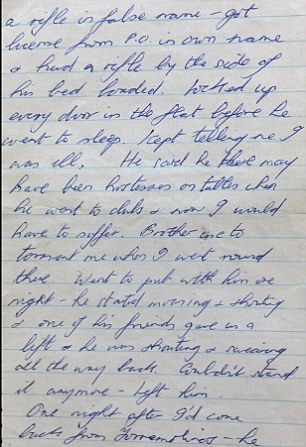 a rifle in false name - got
license from P.O. in own name
& had a rifle by the side of
his bed loaded. Locked up
every door in the flat before he
went to sleep. Kept telling me I
was ill. He said he there may
have been hostesses on tables when
he went to clubs & now I would
have to suffer. Brother use to
torment me when I went round
there Went to pub with him one
night - he started moaning & shouting
& one of his friends gave us a
lift & he was shouting & swearing
all the way back. Couldn't stand
it anymore - left him.
One night after I'd come
back from - he